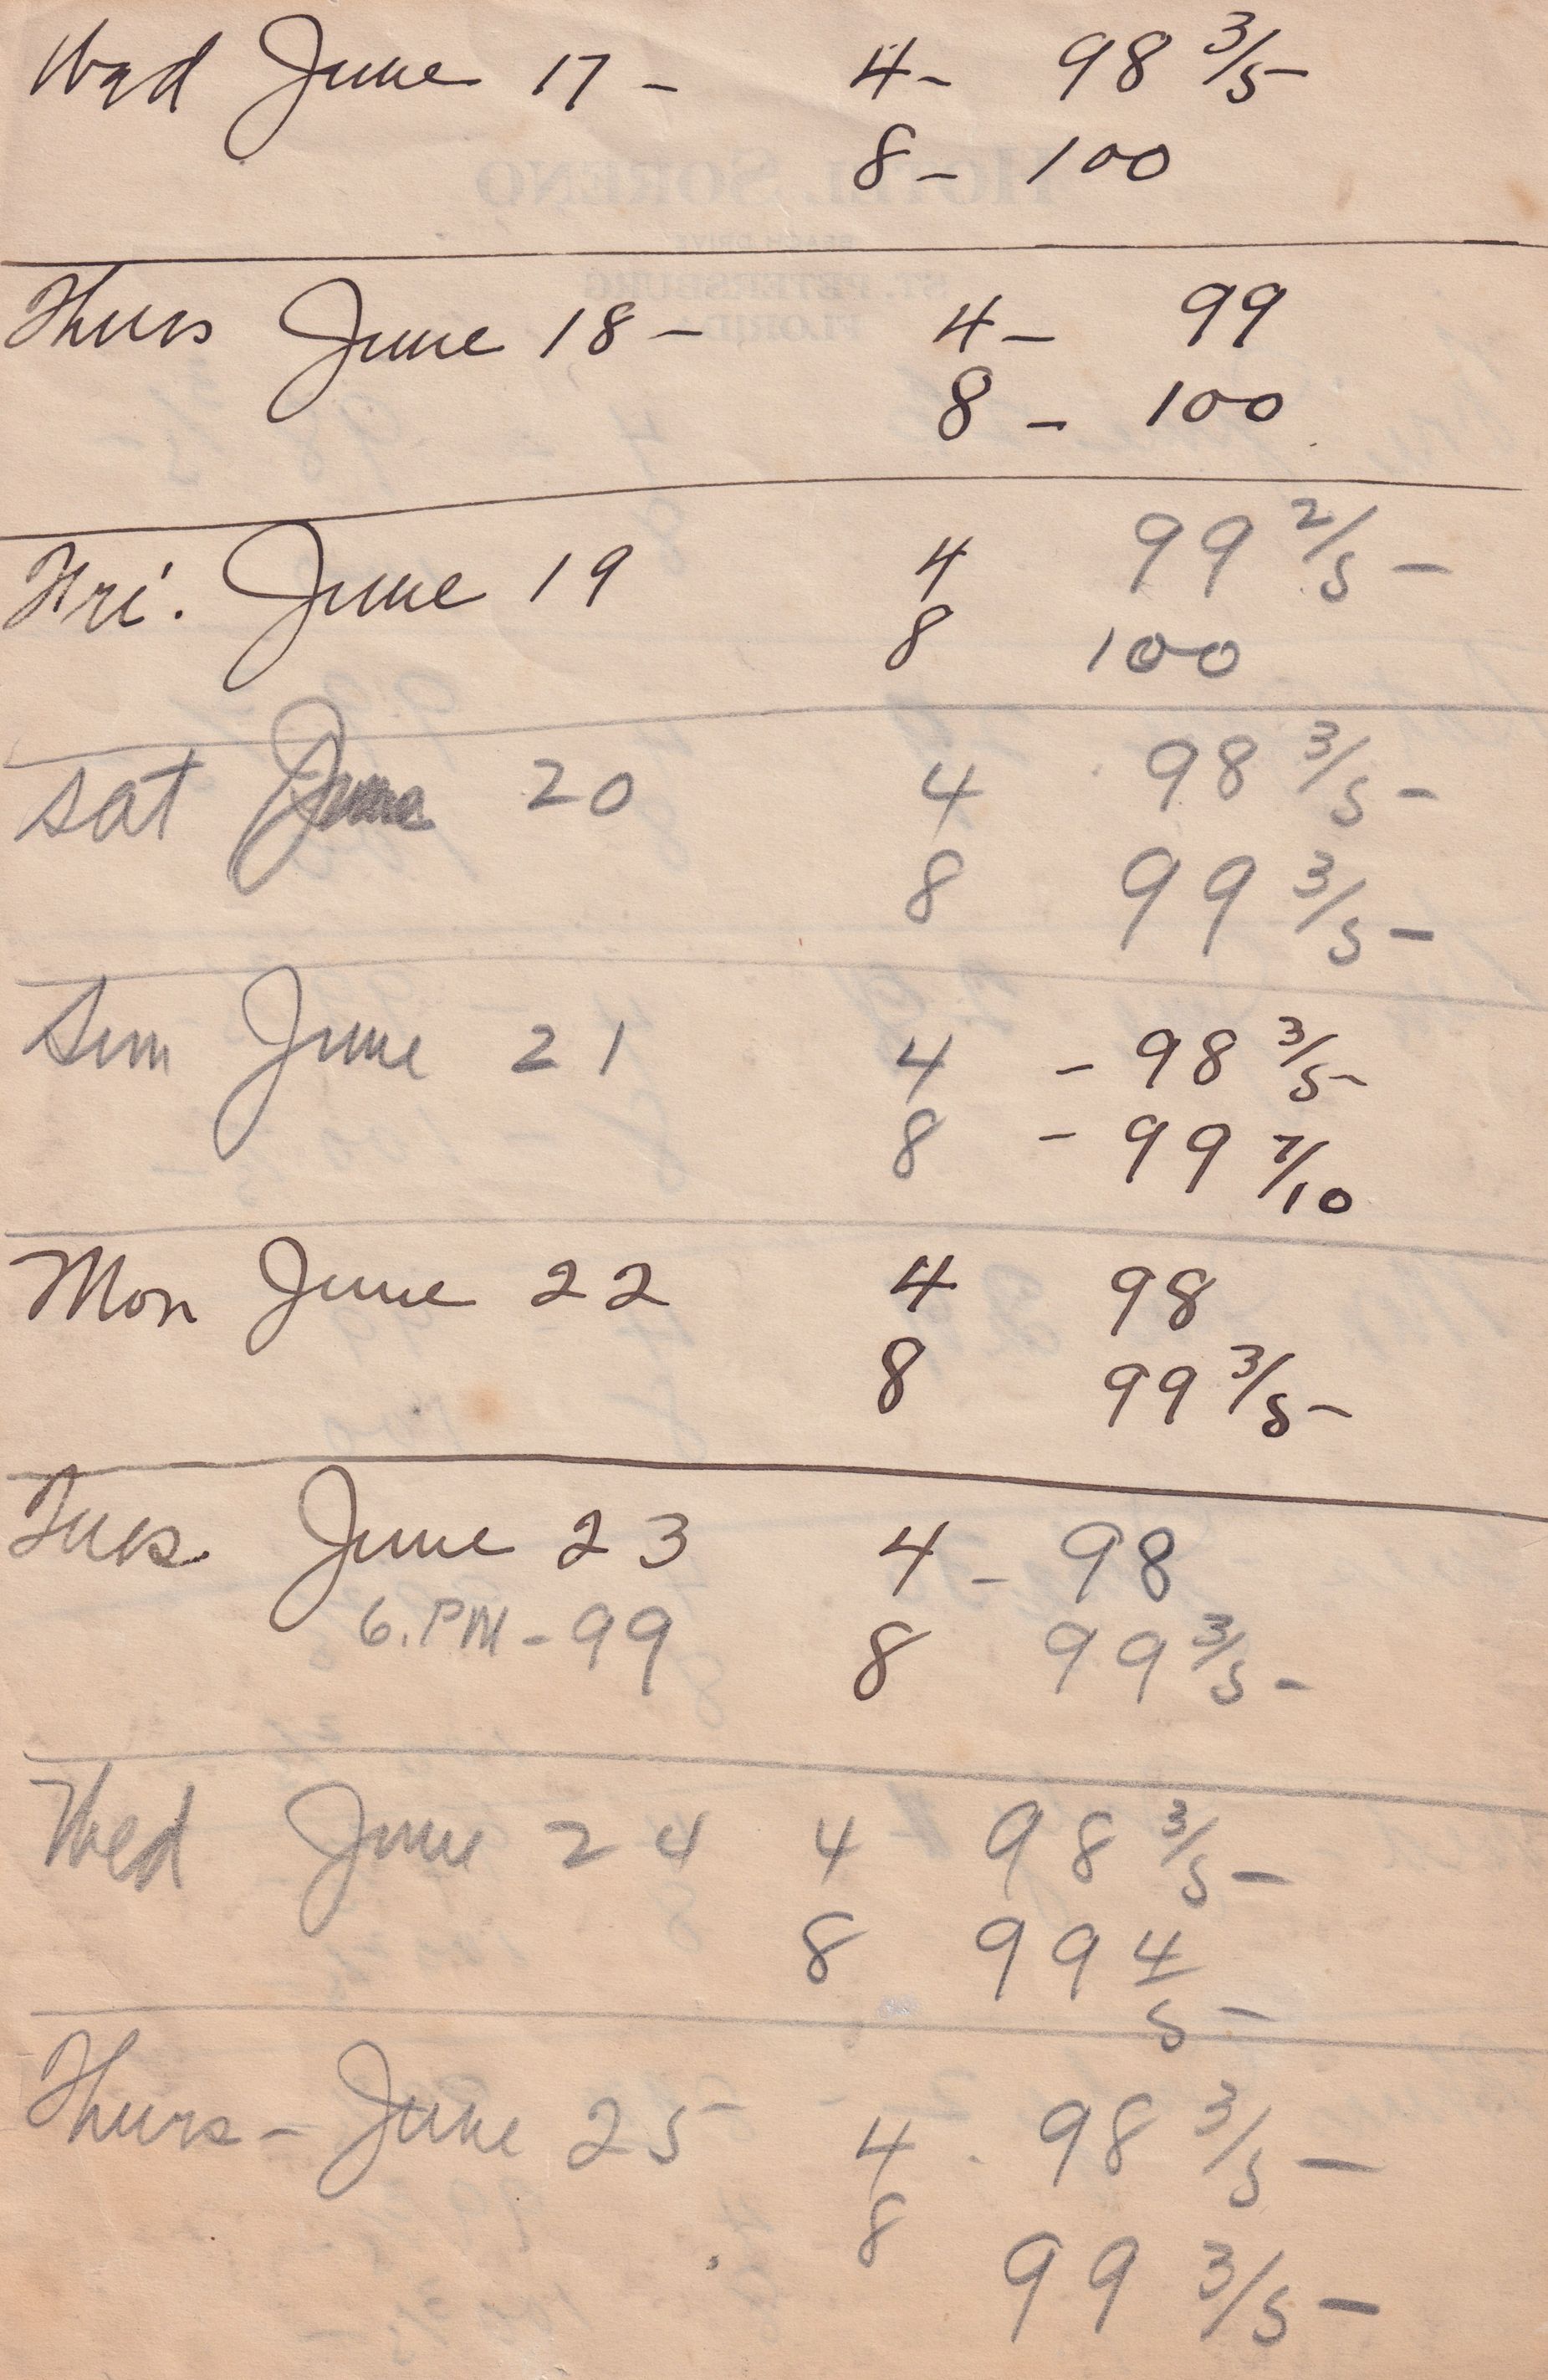 Wed June 17 - 4 - 98 3/5
8 - 100
HOTEL SORENO
BEACH DRIVE
ST. PETERSBURG
FLORIDA
Thurs June 18 - 4 - 99
8 - 100
Fri. June 19 4 99 2/5
8 100
Sat June 20 4 98 3/5
8 99 3/5
Sun June 21 4 - 98 3/5
8 - 99 7/10
Mon June 22 4 98
8 99 3/5
Tues June 23 4 - 98
6. PM - 99 8 99 3/5
Wed June 24 4 98 3/5
8 99 4/5
Thurs - June 25 4 98 3/5
8 99 3/5